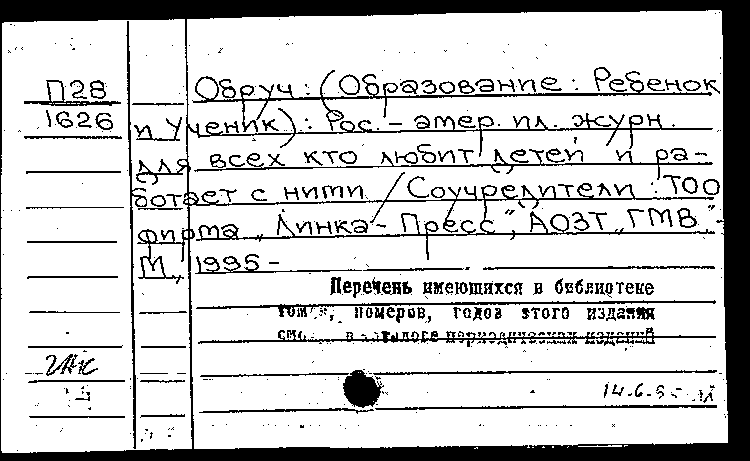 П28
1626
Обруч: (Образование: Ребенок
и Ученик): Рос.-амер. пл. журн.
для всех кто любит детей и ра-
ботает с ними / Соучредители: ТОО
фирма „Линка-Пресс", АОЗТ „ГМВ."-
М., 1995-
Перечень имеющихся в библиотеке
томов, номеров, годов этого издания
см. в каталоге периодических изданий